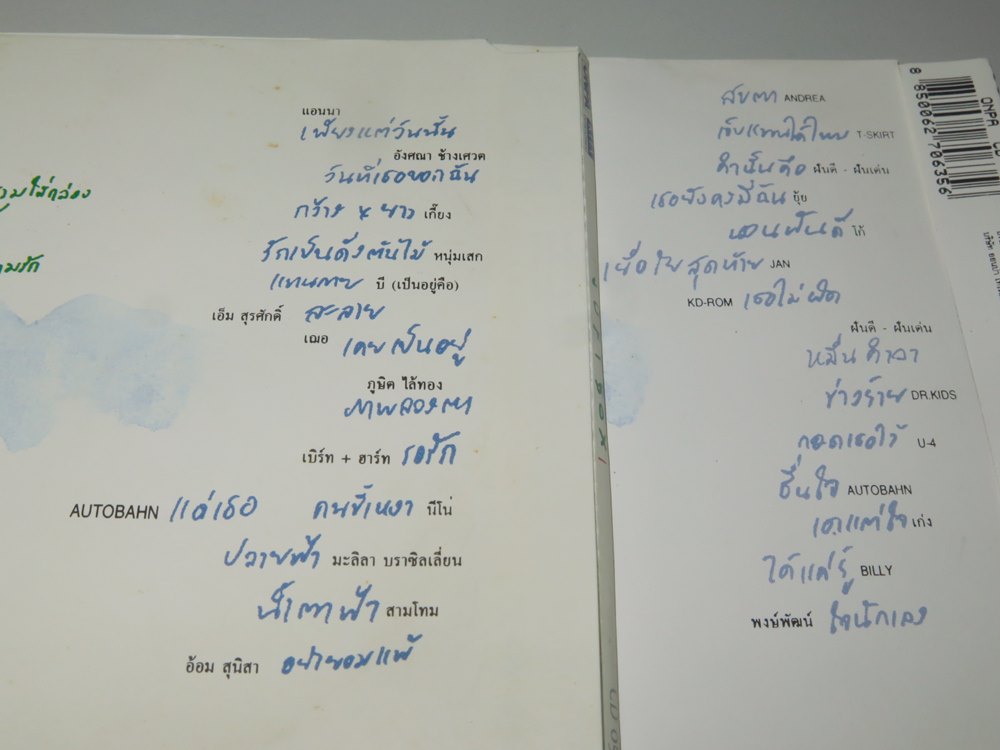 แอนนา
เพียงแต่วันนั้น
อังศณา ช้างเศวต
วันที่เธอบอกฉัน
กว้าง x ยาว เกี๊ยง
รักเป็นดั่งต้นไม้ หนุ่มเสก
แทนกาย บี (เป็นอยู่คือ)
เอ็ม สุรศักดิ์ ละลาย
เฌอ เคยเป็นอยู่
ภูษิต ไล้ทอง
ภาพลวงตา
เบิร์ท + ฮาร์ท รอรัก
AUTOBAHN แด่เธอ คนขี้เหงา นีโน่
ปลายฟ้า มะลิลา บราซิลเลี่ยน
น้ำตาฟ้า สามโทน
อ้อม สุนิสา อย่ายอมแพ้
ใส่กล่อง
ามรัก
สบตา ANDREA
เจ็บแทนได้ไหม T-SKIRT
คำนั้นคือ ฝันดี - ฝันเด่น
เธอยังคงมีฉัน ยุ้ย
นอนฝันดี โก้
เยื่อใยสุดท้าย JAN
KD-ROM เธอไม่ผิด
ฝันดี - ฝันเด่น
หมื่นคำลา
ช่างร้าย DR.KIDS
กอดเธอไว้ U-4
ชื่นใจ AUTOBAHN
เอาแต่ใจ เก่ง
ได้แค่รู้ BILLY
พงษ์พัฒน์ ใจนักเลง
8 850062 706356
ONPA CD